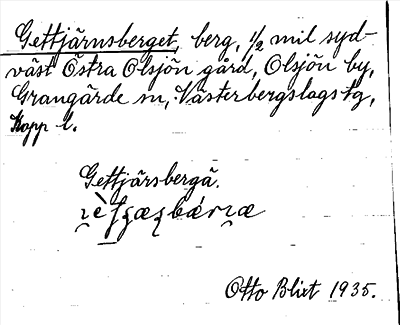 Gettjärnsberget, berg, 1/2 mil syd-
väst Östra Olsjön gård, Olsjön by,
Grangärde sn, Västerbergslags tg,
Kopp l.
Gettjärsbergä.
Otto Blixt 1935.